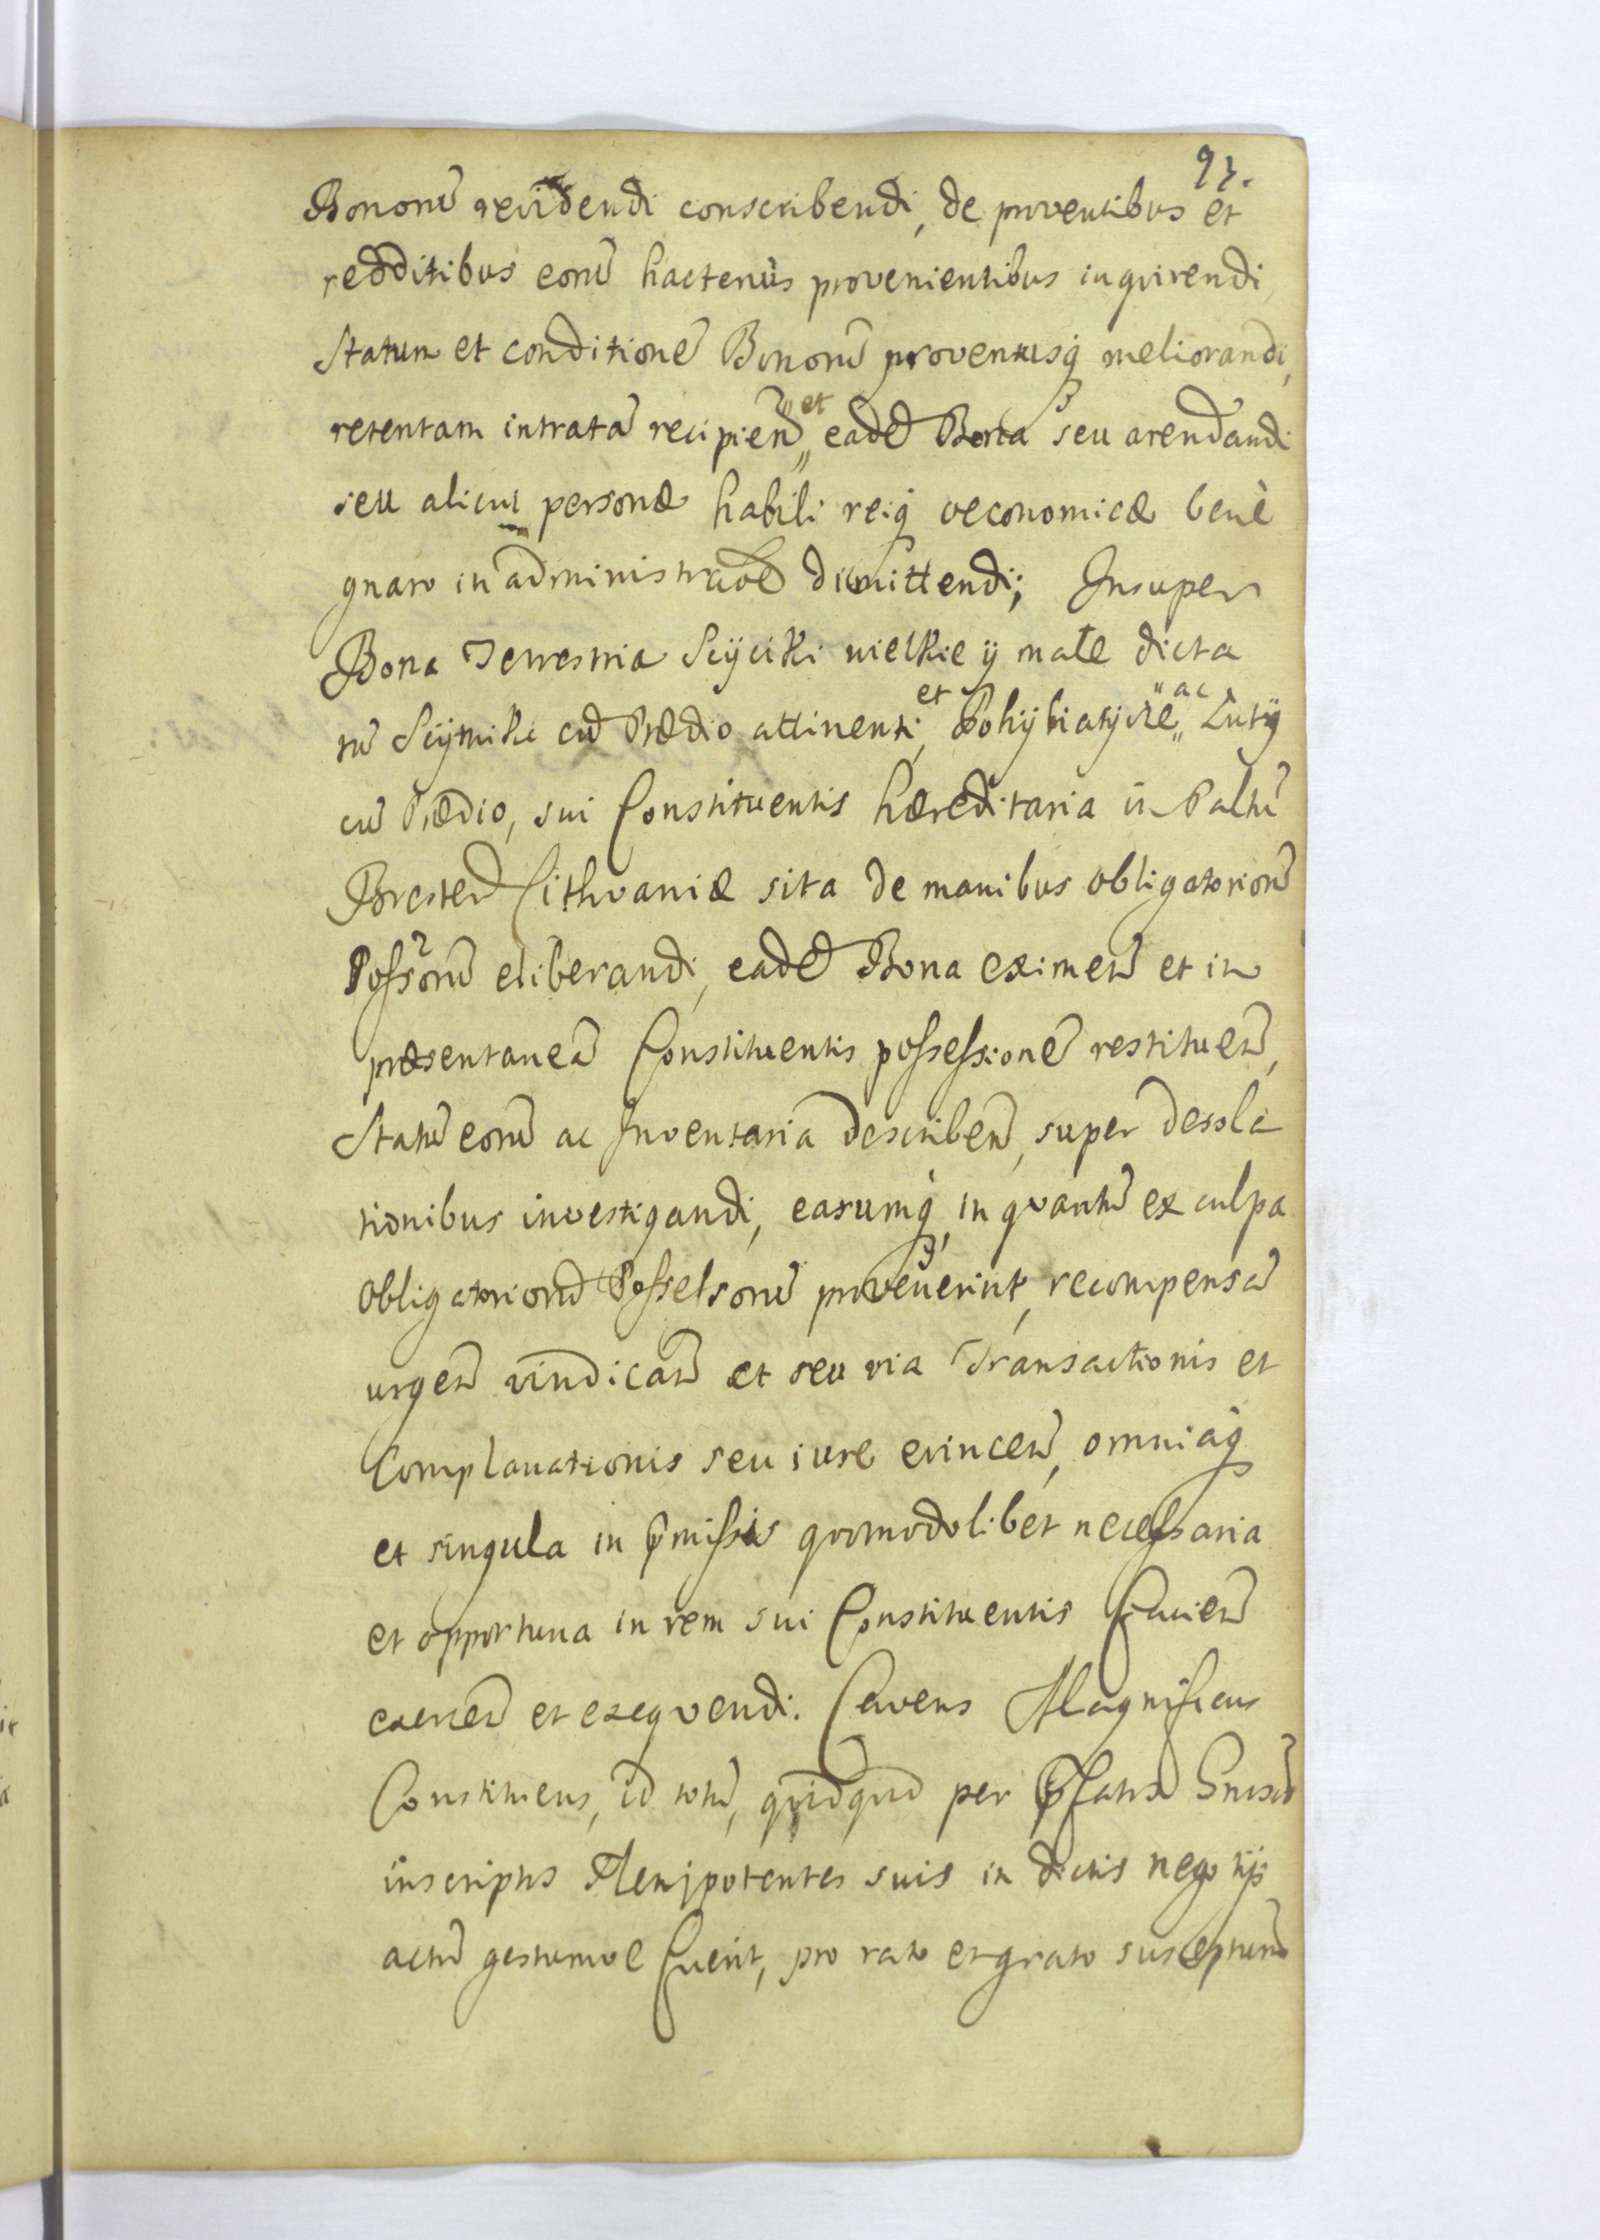 97.
Bonorū revidendi conscribendi, de proventibus et
redditibus eorū hactenùs provenientibus inqvirendi,
Statum et conditionē Bonorū proventusq́ meliorandi,
retentam intratā recipien̄ et eadē Bona seu arendandi
seu alicui personæ habili reiq́ oeconomicæ benè
gnaro in administraōē dimittendi; Insuper
Bona Terrestria Scyciki wielkie ÿ małe dicta
cū Prædio attinenti, et ac
cū Prædio, sui Constituentis hæreditaria in Paltū
Bresteń Lithvaniæ sita de manibus obligatoriorū
Poss̄orū eliberandi, eadē Bona eximeń et in
præsentaneā Constituentis possessionē restitueń,
Statū eorū ac Inventariā describeń, super desola
tionibus investigandi, earumq́ in qvantū ex culpa
Obligatoriorū Possessorū provenerint, recompensā
urgeń vindicań et seu via Transactionis et
Complanationis seu iure evinceń, omniaq́
et singula in p̄missis qvomodolibet necessaria
et opportuna in rem sui Constituentis facień
exerceń et exeqvendi. Cavens Magnificus
Constituens, id totū, qvidqvid per p̄fatos
inscriptos Plenipotentes suis in dictis negotijs
actū gestumve fuerit, pro rato et grato suscepturū